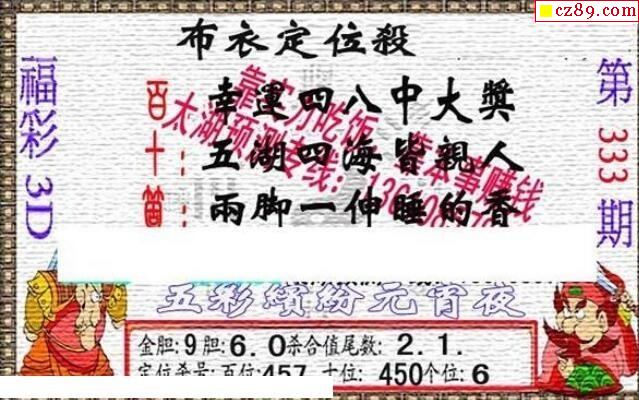 cz89.com
布衣定位殺
福彩3D
第333期
百:幸運四八中大獎
十:五湖四海皆親人
個:兩脚一伸睡的香
靠实力吃饭 靠本事赚钱
太湖预测专线:
五彩繽紛元宵夜
金胆:9胆:6.0杀合值尾数:2.1.
定位杀号:百位:457 十位:450个位:6